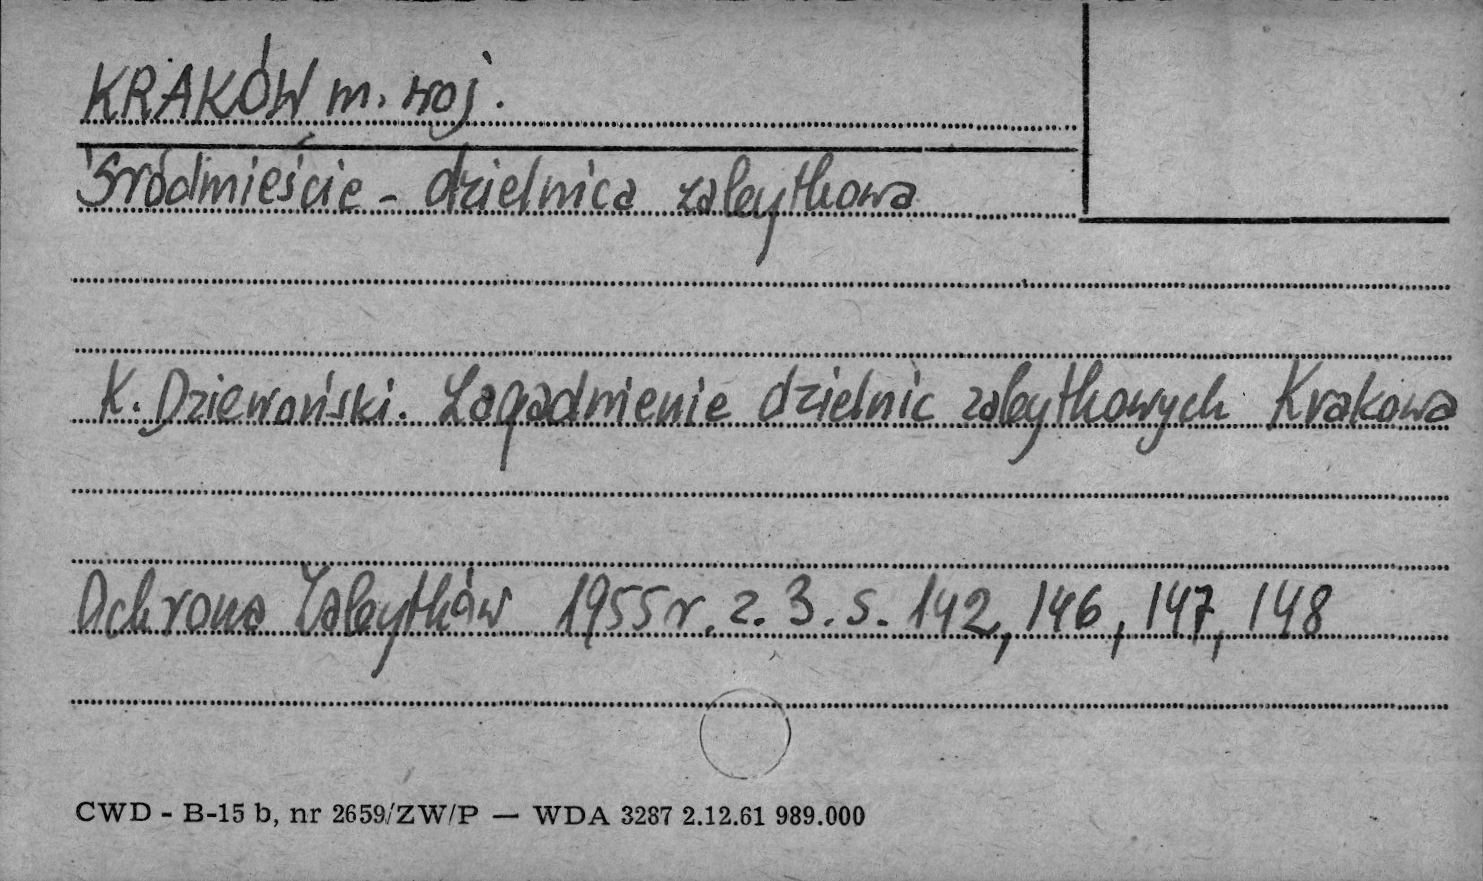 KRAKÓW m. woj.
Śródmieście - dzielnica zabytkowa
K. Dziewoński. Zagadnienie dzielnic zabytkowych Krakowa
Ochrona Zabytków 1955 r. z. 3. s. 142, 146, 147, 148
CWD - B-15 b, nr 2659/ZW/P — WDA 3287 2.12.61 989.000